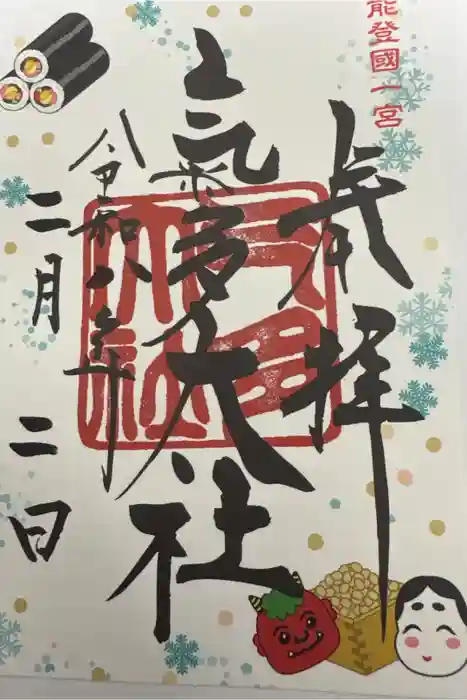 能登國一宮
奉拝
氣多大社
气多
大社
令和八年
二月二日